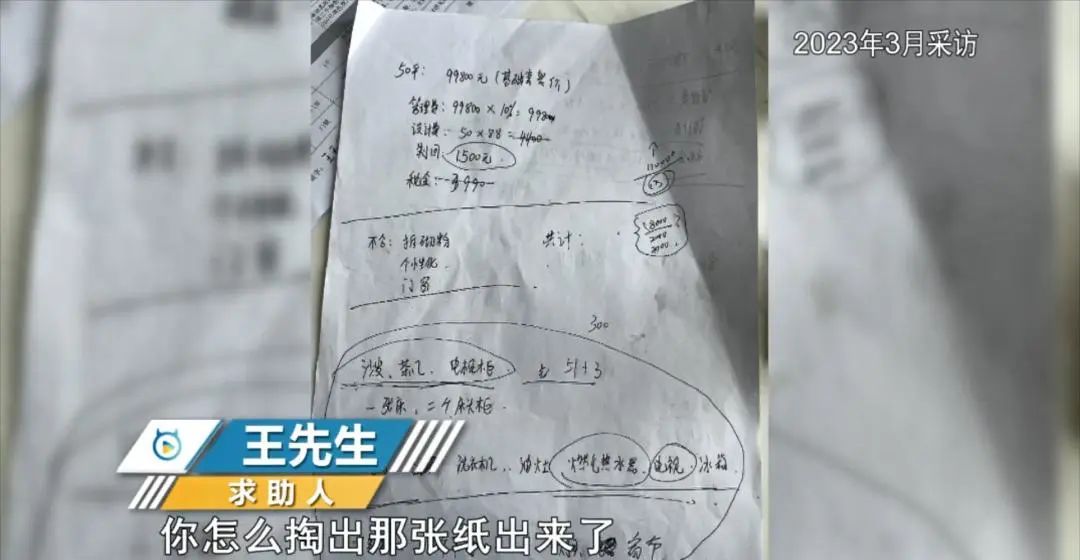 2023年3月采访
50平: 99800元(基础套餐价)
管理费: 99800×10%=9980
设计费: 50×88=4400
制图: 1500元
税金:
不含: 拆砌粉 共计:
个性化
门窗
300
沙发、茶几、电视柜 去 51+3
一张床、二个床头柜
洗衣机、油灶 燃气热水器 电视 冰箱
王先生
求助人
你怎么掏出那张纸出来了